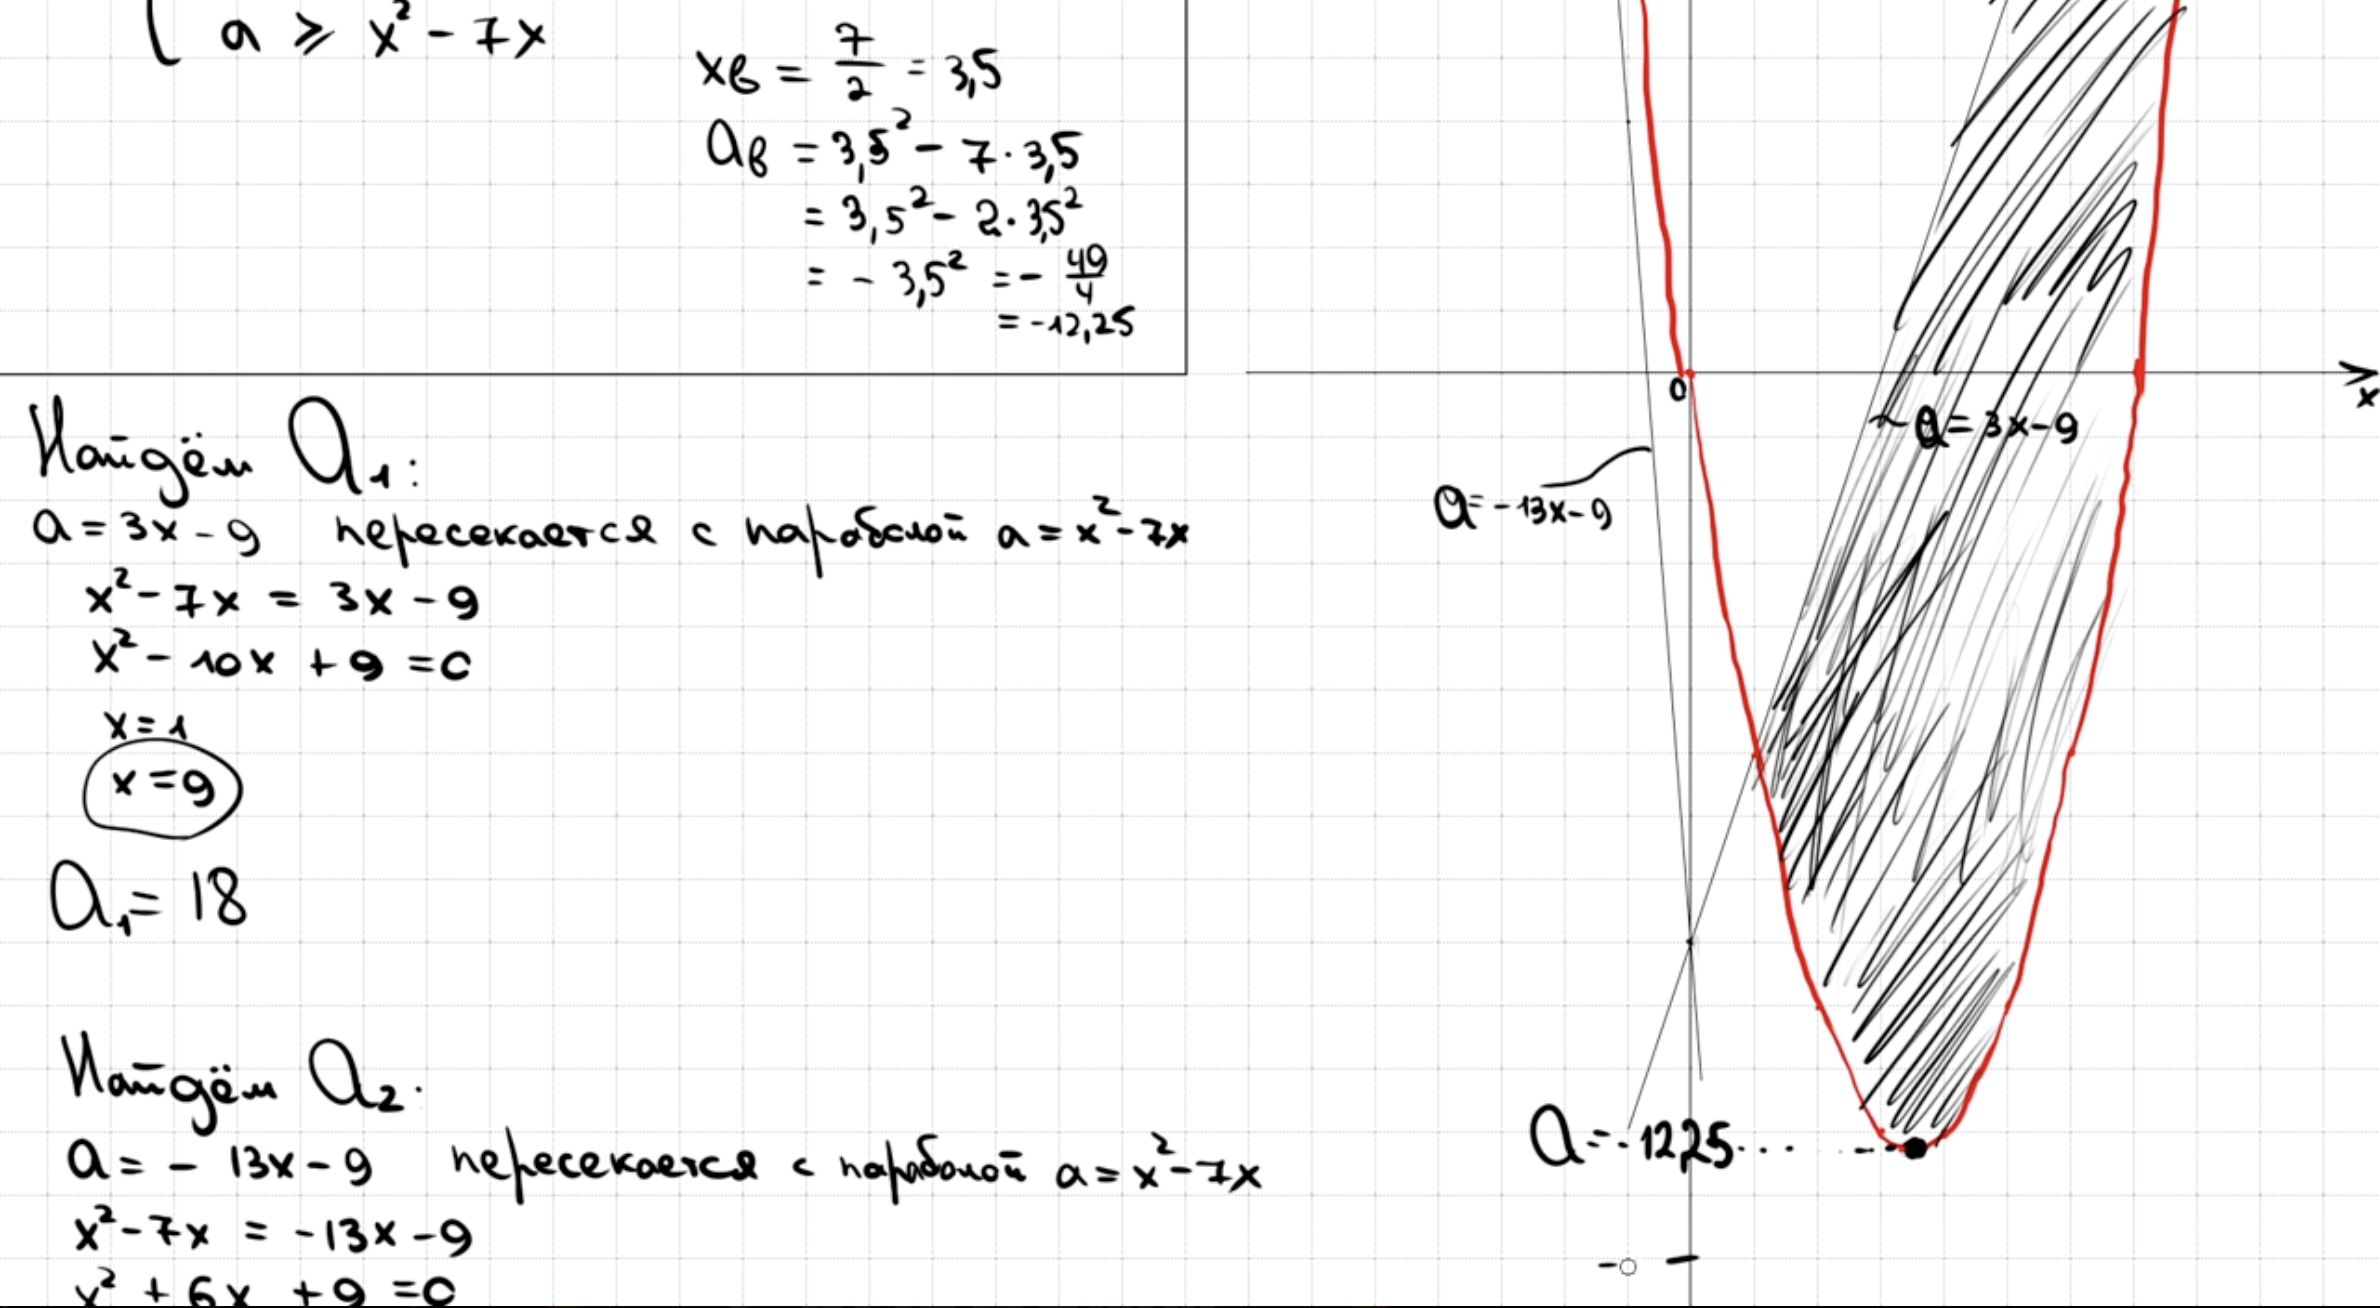 { a ⩾ x² - 7x
xв = 7/2 = 3,5
aв = 3,5² - 7·3,5
= 3,5² - 2·3,5²
= - 3,5² = - 49/4
= -12,25
Найдём a₁:
a = 3x - 9 пересекается с параболой a = x² - 7x
x² - 7x = 3x - 9
x² - 10x + 9 = 0
x = 1
x = 9
a₁ = 18
Найдём a₂:
a = - 13x - 9 пересекается с параболой a = x² - 7x
x² - 7x = -13x - 9
x² + 6x + 9 = 0
0
x
a = 3x - 9
a = -13x - 9
a = -12,25